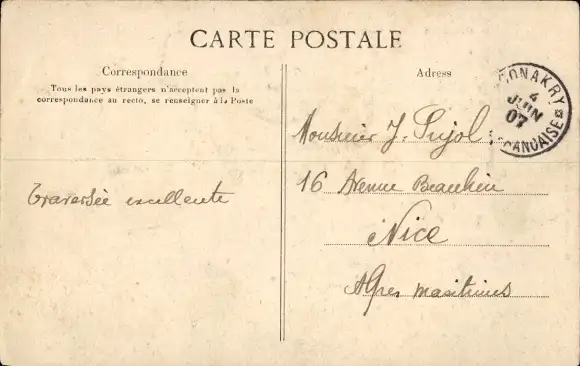 CARTE POSTALE
Correspondance
Tous les pays étrangers n'acceptent pas la
correspondance au recto, se renseigner à la Poste
Adress
CONAKRY
4
JUIN
07
FRANCAISE
Monsieur J. Pujol
16 Avenue Beaulieu
Nice
Alpes maritimes
Traversée excellente